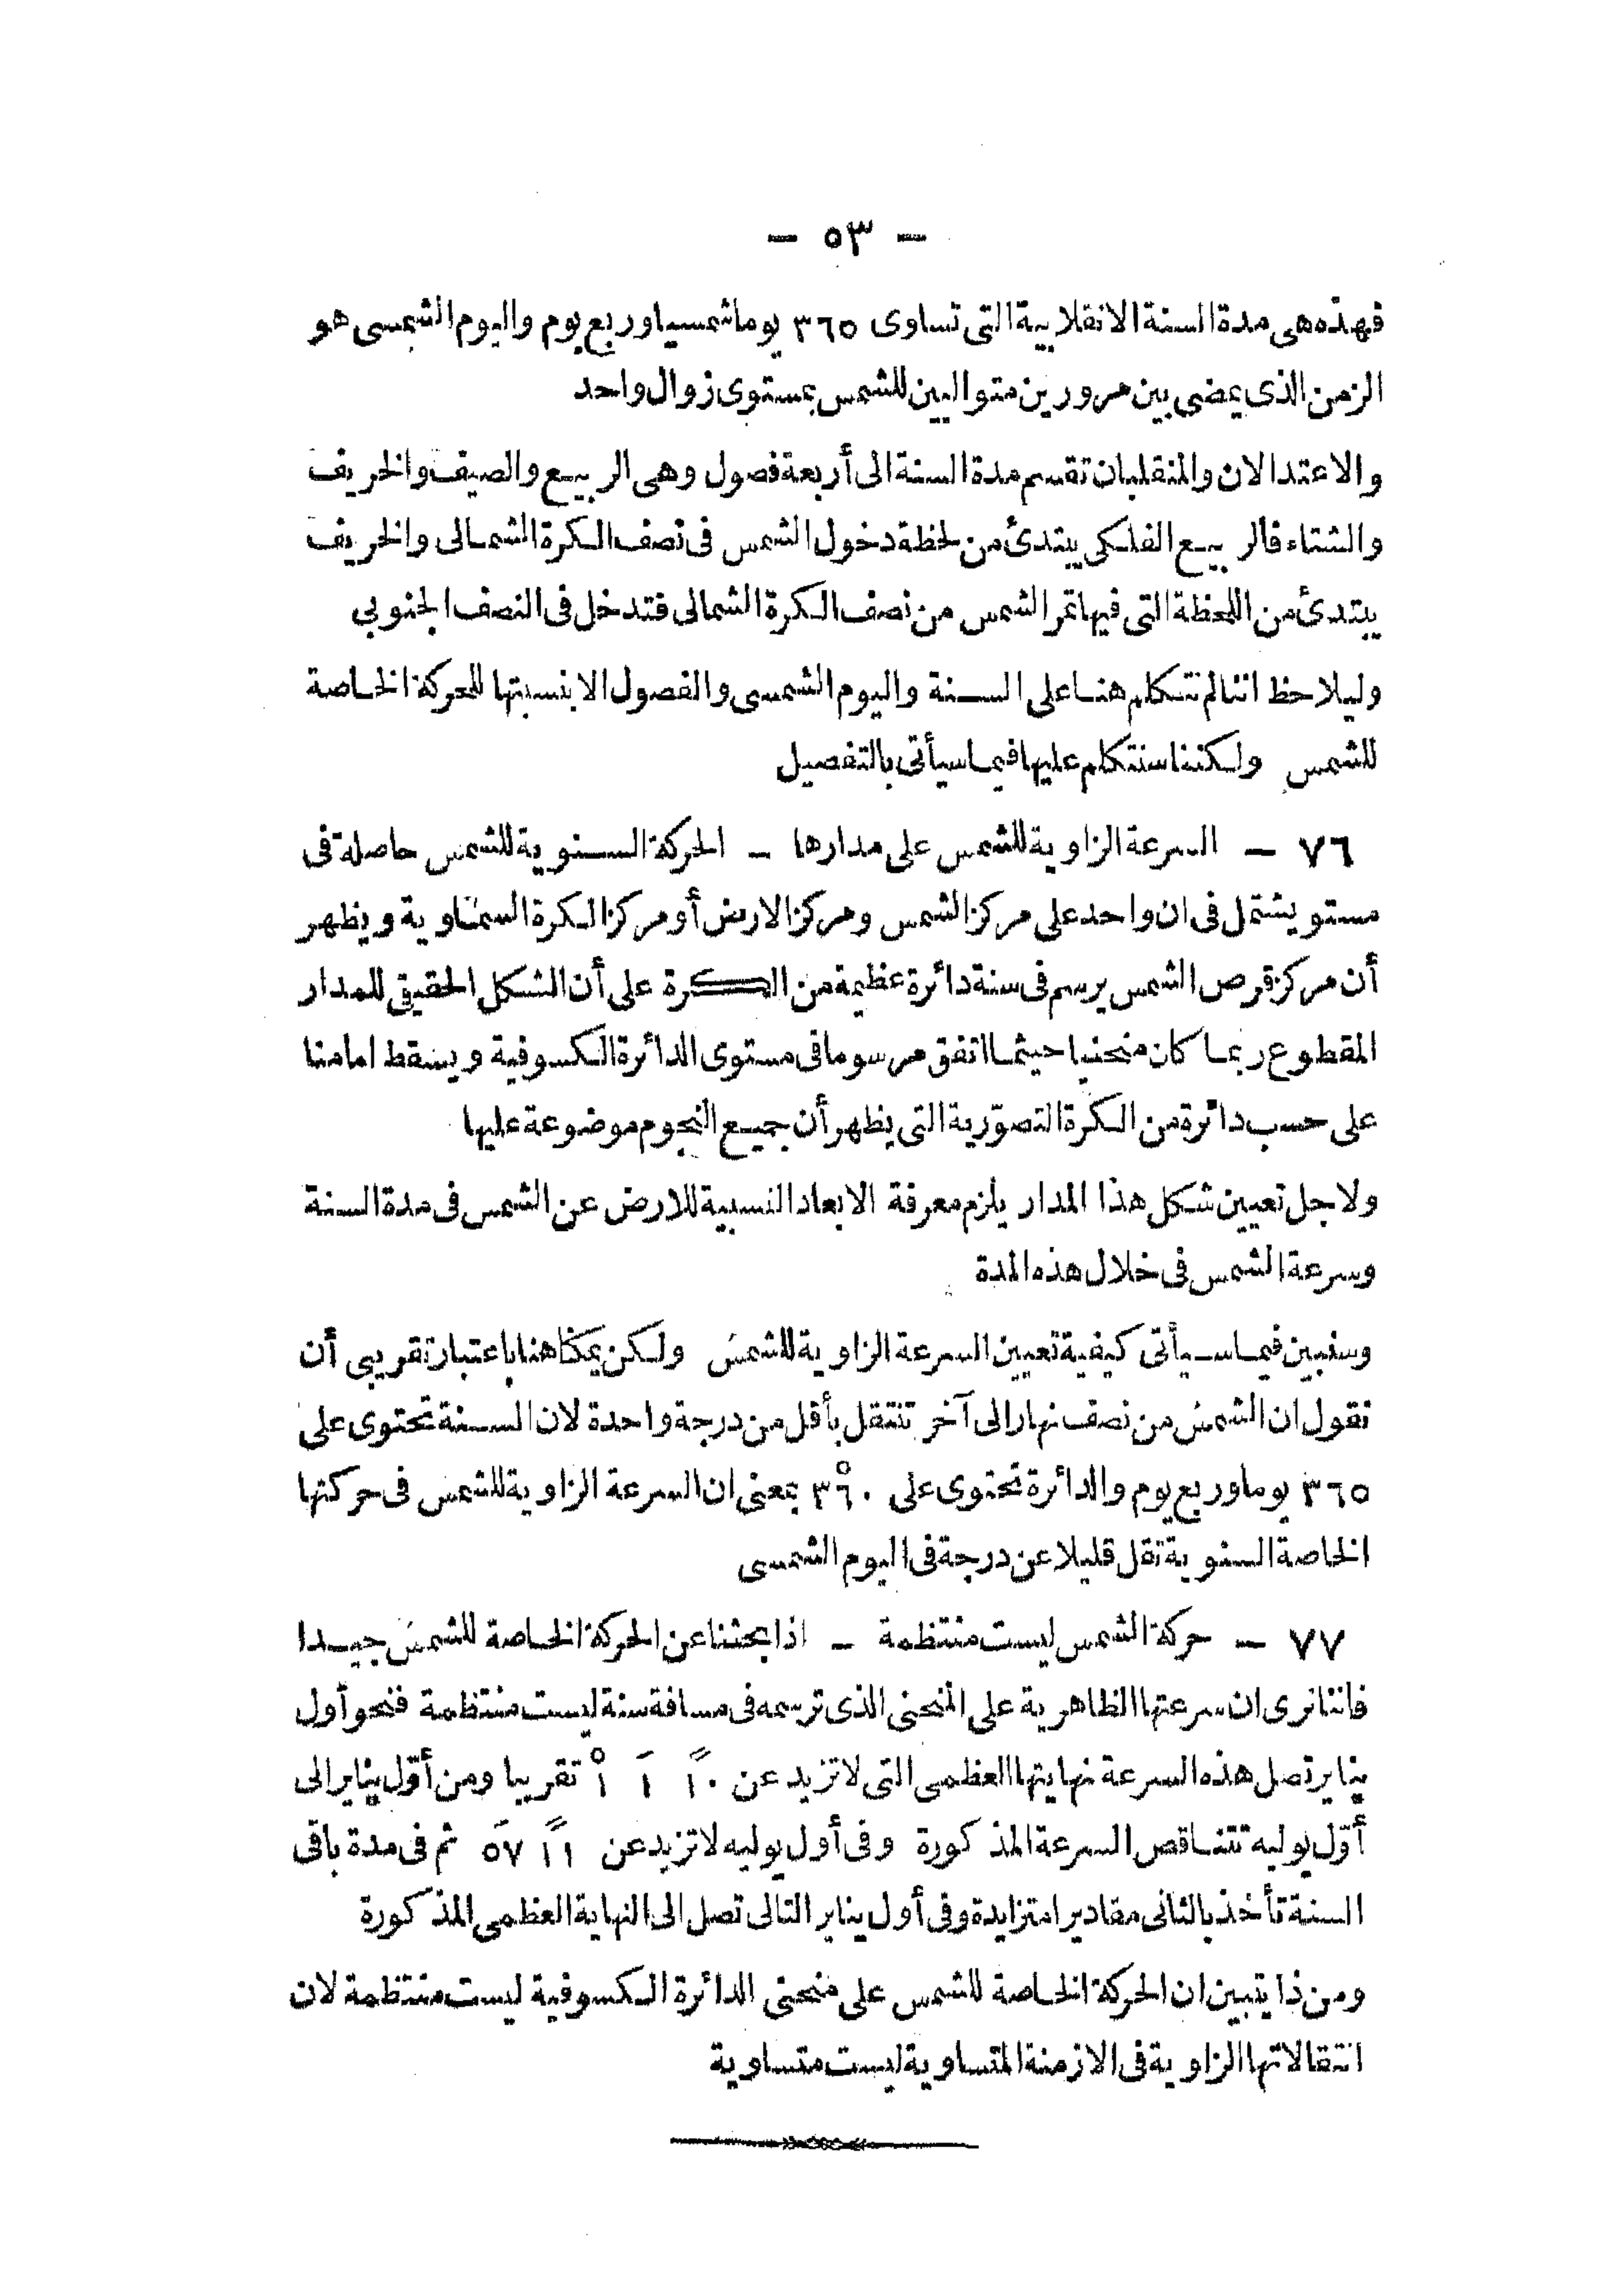 — ٥٣ —
فهذه هى مدة السنة الانقلابية التى تساوى ٣٦٥ يوما شمسيا وربع يوم واليوم الشمسى هو
الزمن الذى يمضى بين مرورين متواليين للشمس بمستوى زوال واحد
والاعتدالان والمنقلبان تقسم مدة السنة الى أربعة فصول وهى الربيع والصيف والخريف
والشتاء فالربيع الفلكى يبتدئ من لحظة دخول الشمس فى نصف الكرة الشمالى والخريف
يبتدئ من اللحظة التى فيها تمر الشمس من نصف الكرة الشمالى فتدخل فى النصف الجنوبى
وليلاحظ اننا لم نتكلم هنا على السنة واليوم الشمسى والفصول الا بنسبتها للحركة الخاصة
للشمس ولكننا سنتكلم عليها فيما سيأتى بالتفصيل
٧٦ — السرعة الزاوية للشمس على مدارها — الحركة السنوية للشمس حاصلة فى
مستو يشتمل فى ان واحد على مركز الشمس ومركز الارض أو مركز الكرة السماوية ويظهر
أن مركز قرص الشمس يرسم فى سنة دائرة عظيمة من الكرة على أن الشكل الحقيقى للمدار
المقطوع ربما كان منحنيا حيثما اتفق مرسوما فى مستوى الدائرة الكسوفية ويسقط امامنا
على حسب دائرة من الكرة التصوّرية التى يظهر أن جميع النجوم موضوعة عليها
ولاجل تعيين شكل هذا المدار يلزم معرفة الابعاد النسبية للارض عن الشمس فى مدة السنة
وسرعة الشمس فى خلال هذه المدة
وسنبين فيما سيأتى كيفية تعيين السرعة الزاوية للشمس ولكن يمكنا هنا باعتبار تقريبى أن
نقول ان الشمس من نصف نهار الى آخر تنتقل بأقل من درجة واحدة لان السنة تحتوى على
٣٦٥ يوما وربع يوم والدائرة تحتوى على ٣٦٠° بمعنى ان السرعة الزاوية للشمس فى حركتها
الخاصة السنوية تقل قليلا عن درجة فى اليوم الشمسى
٧٧ — حركة الشمس ليست منتظمة — اذا بحثنا عن الحركة الخاصة للشمس جيدا
فاننا نرى ان سرعتها الظاهرية على المنحنى الذى ترسمه فى مسافة سنة ليست منتظمة فنحو أول
يناير تصل هذه السرعة نهايتها العظمى التى لا تزيد عن ١٠″ ١′ ١° تقريبا ومن أوّل يناير الى
أوّل يوليه تتناقص السرعة المذكورة وفى أول يوليه لا تزيد عن ١١″ ٥٧′ ثم فى مدة باقى
السنة تأخذ بالثانى مقادير امتزايدة وفى أول يناير التالى تصل الى النهاية العظمى المذكورة
ومن ذا يتبين ان الحركة الخاصة للشمس على منحنى الدائرة الكسوفية ليست منتظمة لان
انتقالاتها الزاوية فى الازمنة المتساوية ليست متساوية